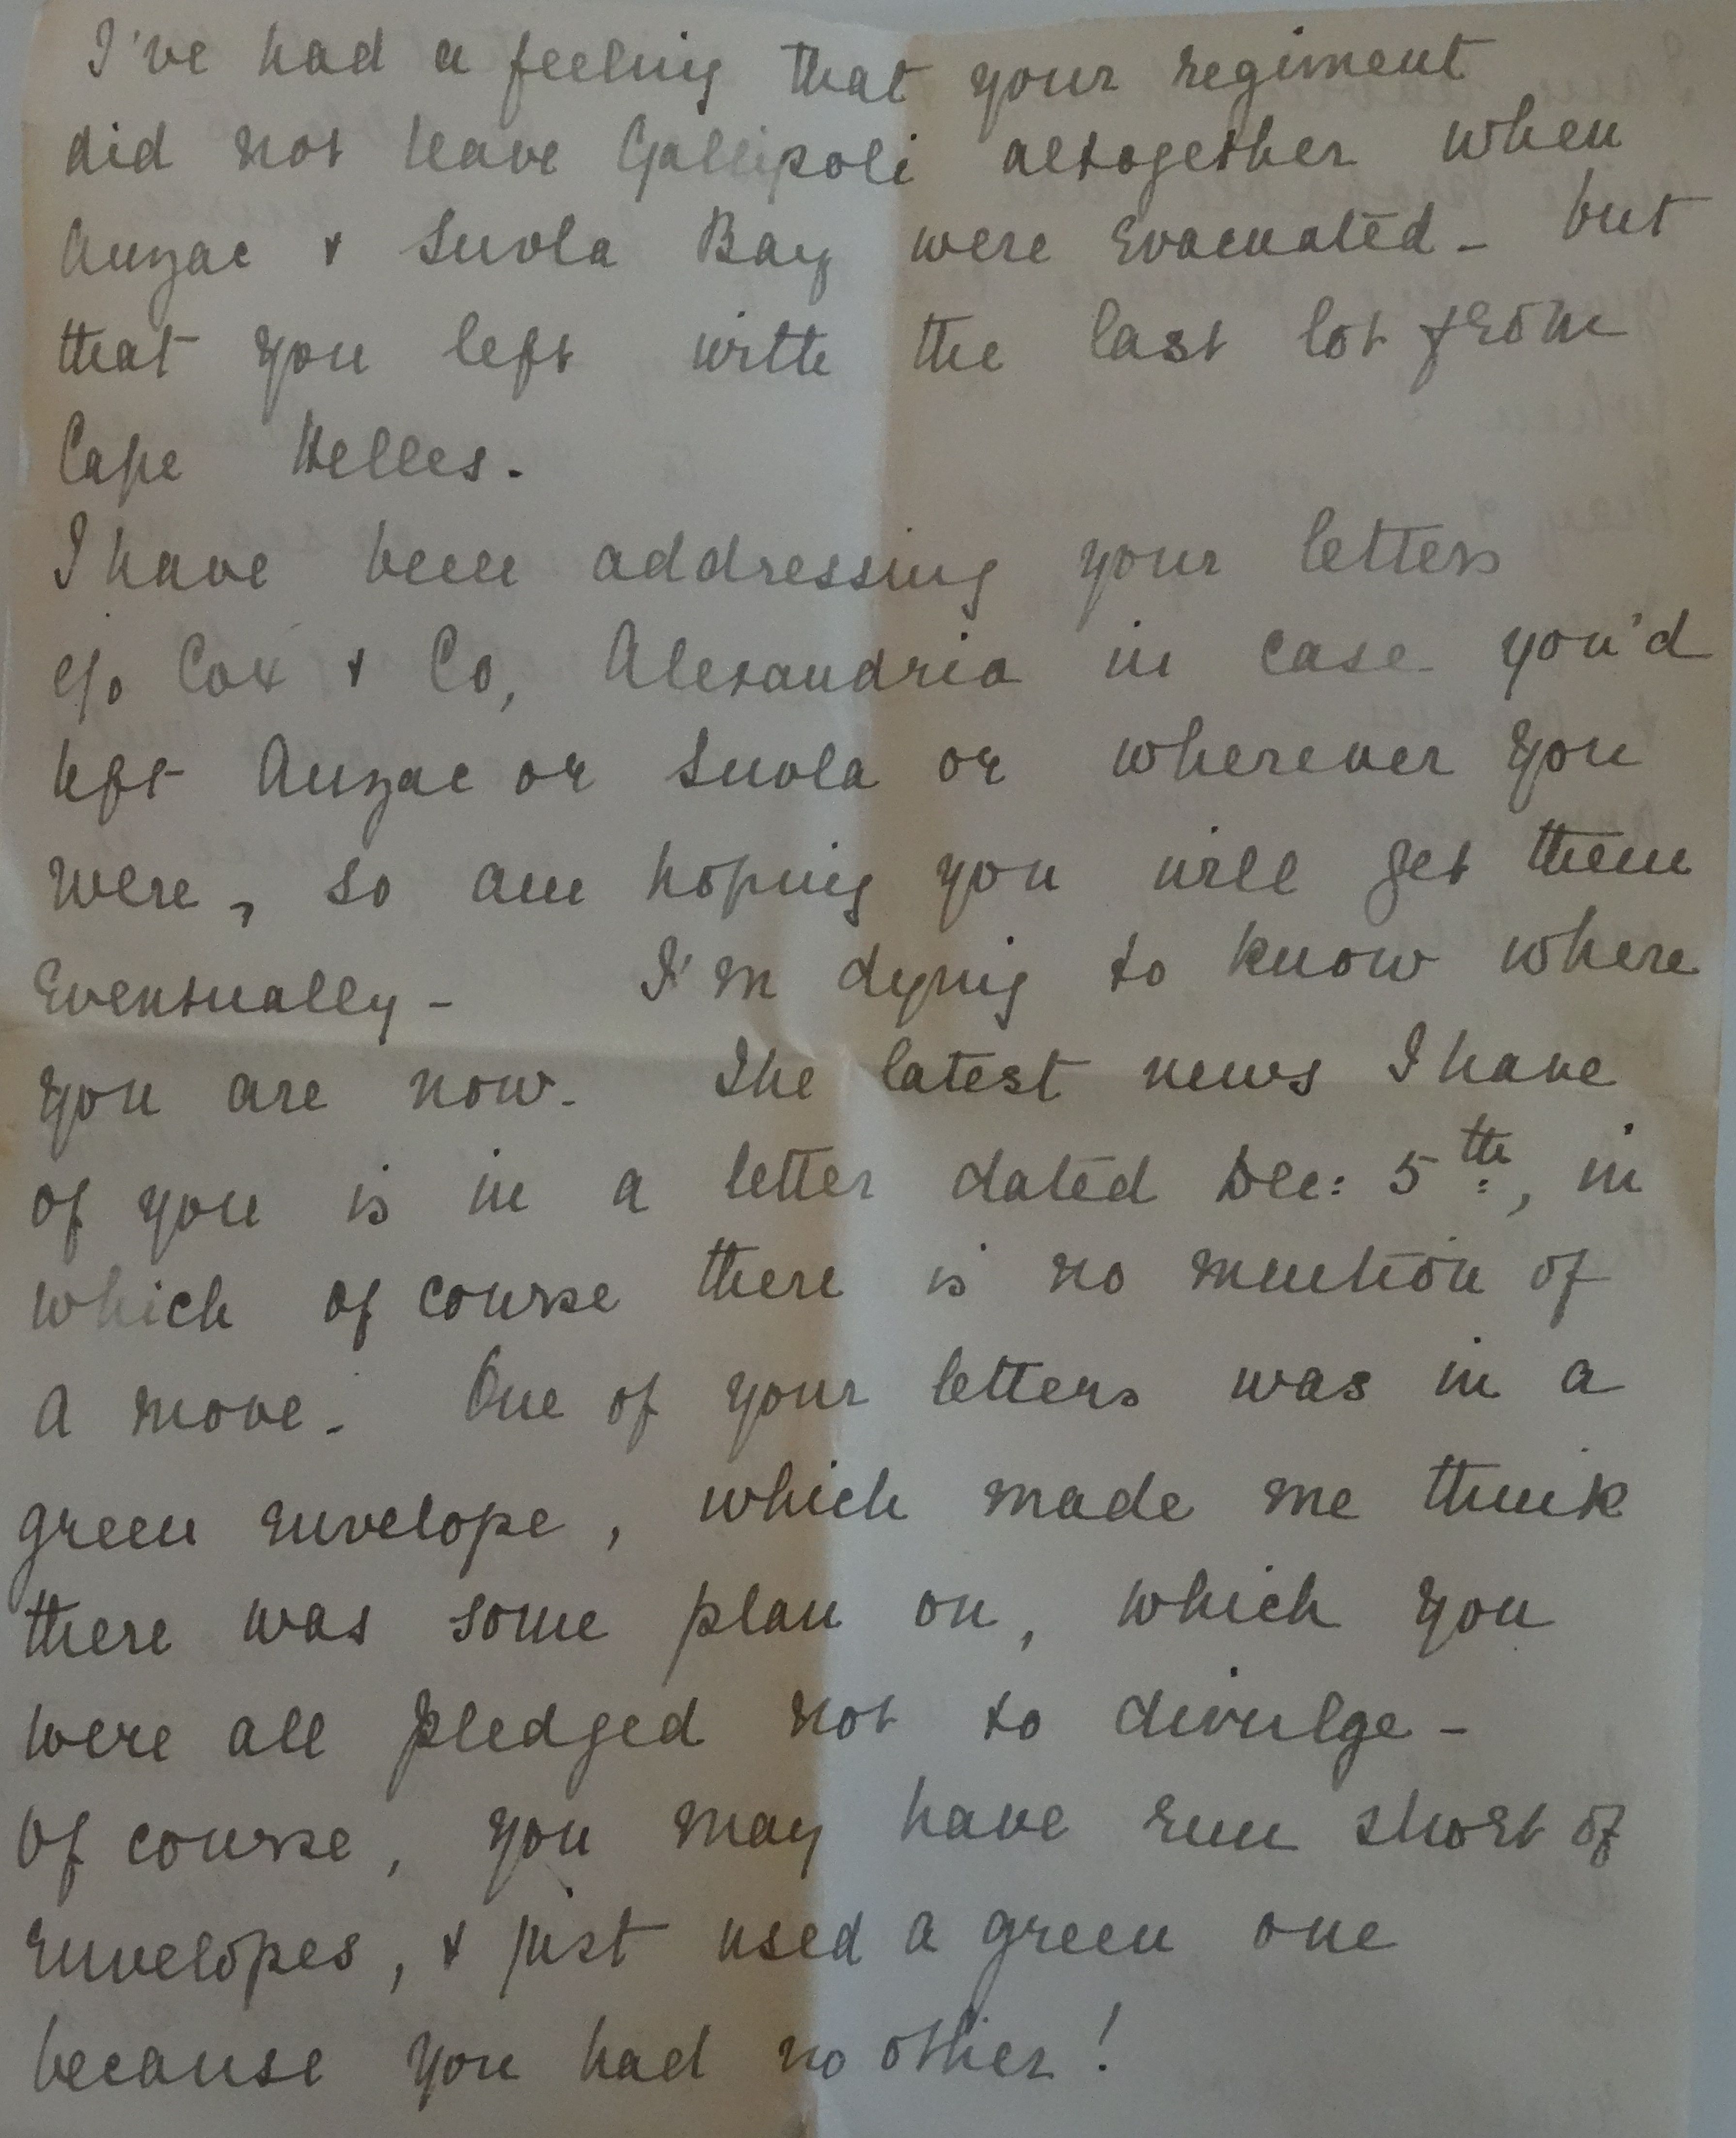 I've had a feeling that your regiment
did not leave Gallipoli altogether when
Anzac & Suvla Bay were evacuated - but
that you left with the last lot from
Cape Helles.
I have been addressing your letters
c/o Cox & Co, Alexandria in case you'd
left Anzac or Suvla or wherever you
were, so am hoping you will get them
eventually - I'm dying to know where
you are now. The latest news I have
of you is in a letter dated Dec: 5th, in
which of course there is no mention of
a move. One of your letters was in a
green envelope, which made me think
there was some plan on, which you
were all pledged not to divulge -
Of course, you may have run short of
envelopes, & just used a green one
because you had no other!